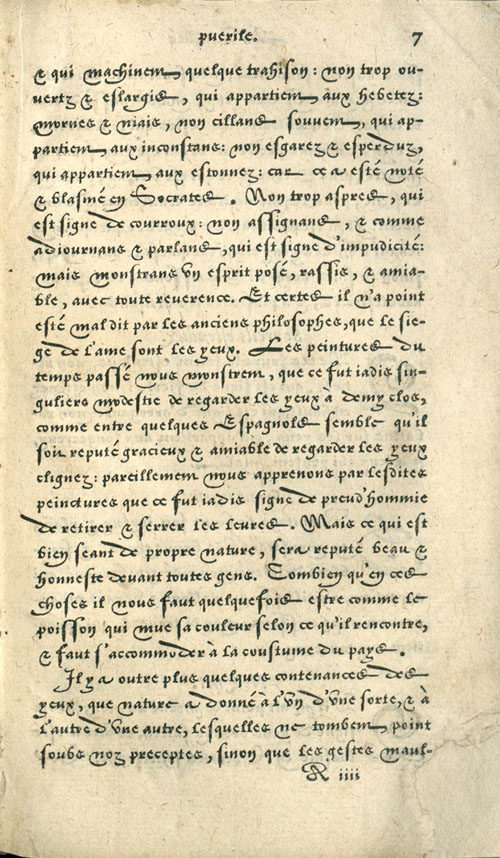 puerile. 7
& qui machinent quelque trahison: non trop ou-
uertz & eslargis, qui appartient aux hebetez:
mornes & niais, non cillans souuent, qui ap-
partient aux inconstans: non esgarez & esperduz,
qui appartient aux estonnez: car ce a esté noté
& blasmé en Socrates. Non trop aspres, qui
est signe de courroux: non assignans, & comme
adiournans & parlans, qui est signe d'impudicité:
mais monstrans vn esprit posé, rassis, & amia-
ble, auec toute reuerence. Et certes il n'a point
esté mal dit par les anciens philosophes, que le sie-
ge de l'ame sont les yeux. Les peintures du
temps passé nous monstrent, que ce fut iadis sin-
guliere modestie de regarder les yeux à demy clos,
comme entre quelques Espagnols semble qu'il
soit reputé gracieux & amiable de regarder les yeux
clignez: pareillement nous apprenons par lesdites
peinctures que ce fut iadis signe de preud'hommie
de retirer & serrer les leures. Mais ce qui est
bien seant de propre nature, sera reputé beau &
honneste deuant toutes gens. Combien qu'en ces
choses il nous faut quelquefois estre comme le
poisson qui mue sa couleur selon ce qu'il rencontre,
& faut s'accommoder à la coustume du pays.
Il y a outre plus quelques contenances des
yeux, que nature a donné à l'vn d'vne sorte, & à
l'autre d'vne autre, lesquelles ne tombent point
soubs noz preceptes, sinon que les gestes maul-
iiii